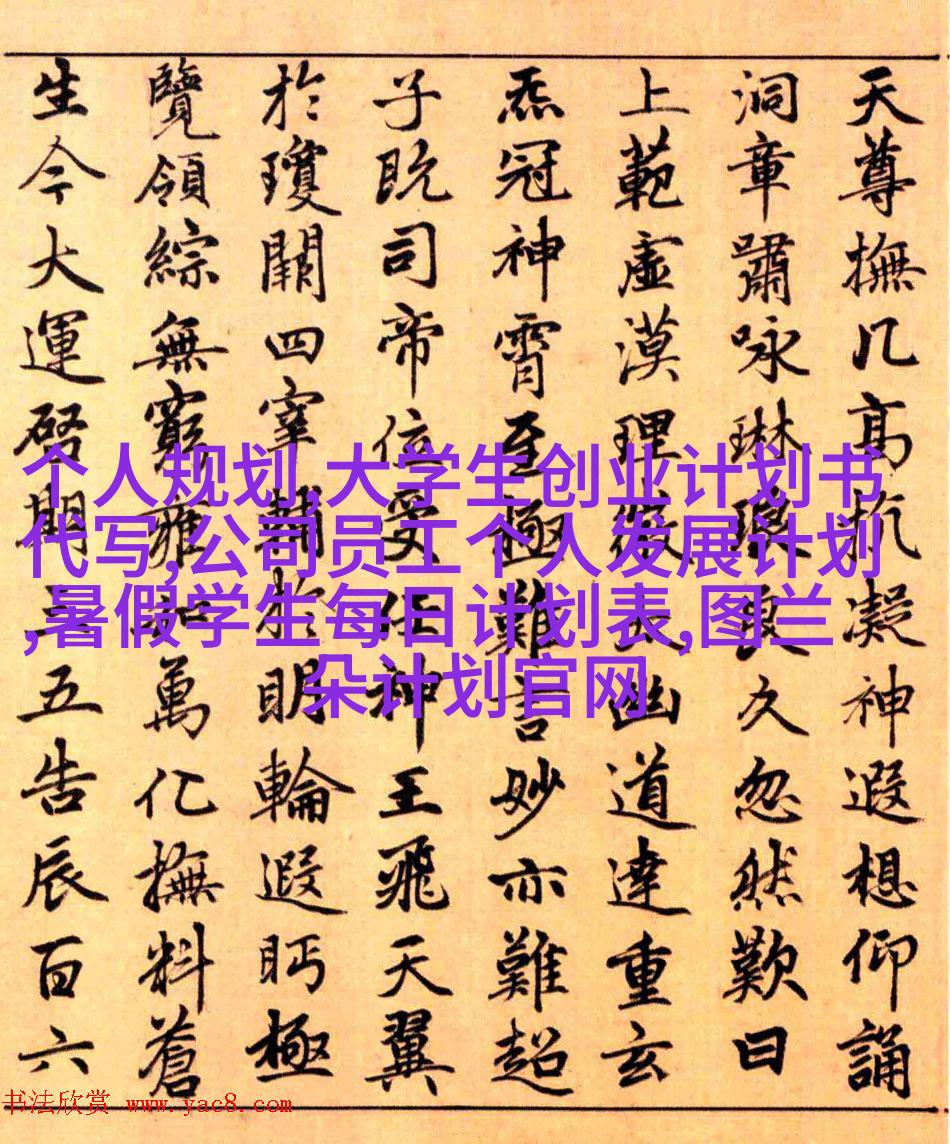 天尊撫几高抗凝神遐想仰誦
洞章嘯咏琳瓊良久忽然歎曰
上範虛漠理幽道達重玄
炁冠神霄至極難言妙亦難超
子既司帝位受任神王飛天翼
於瓊闕四宰輔於明輪遐眄極
覽領綜無窮雍萬化撫料蒼
生今大運啓期三五告辰百六
个人规划,大学生创业计划书
代写,公司员工个人发展计划
,暑假学生每日计划表,图兰
朵计划官网
书法欣赏 www.yac8.com